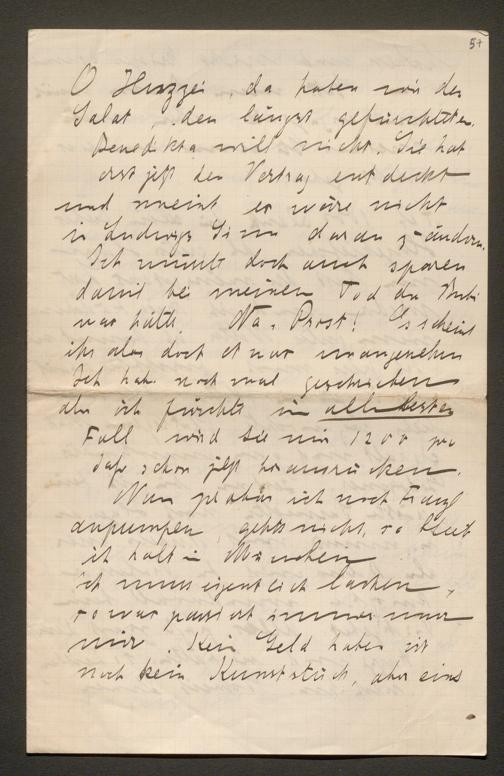 5+
O Huzzei, da haben wir den
Salat, den längst gefürchteten.
Benedikta will nicht. Sie hat
erst jetzt den Vertrag entdeckt
und meint es wäre nicht
in Ludwigs Sinn daran z. ändern.
Ich müsste doch auch sparen
damit bei meinem Tod der Bubi
was hätte. Na, Prost! Es scheint
ihr also doch etwas unangenehm
Ich hab noch mal geschrieben
aber ich fürchte im allerbesten
Fall wird sie mir 1200 pro
Jahr schon jetzt herausrücken.
Nun probier ich noch Franzl
anpumpen, gehts nicht, so bleib
ich halt in München
Ich muss eigentlich lachen,
so was passiert immer nur
mir. Kein Geld haben ist
noch kein Kunststück, aber eins